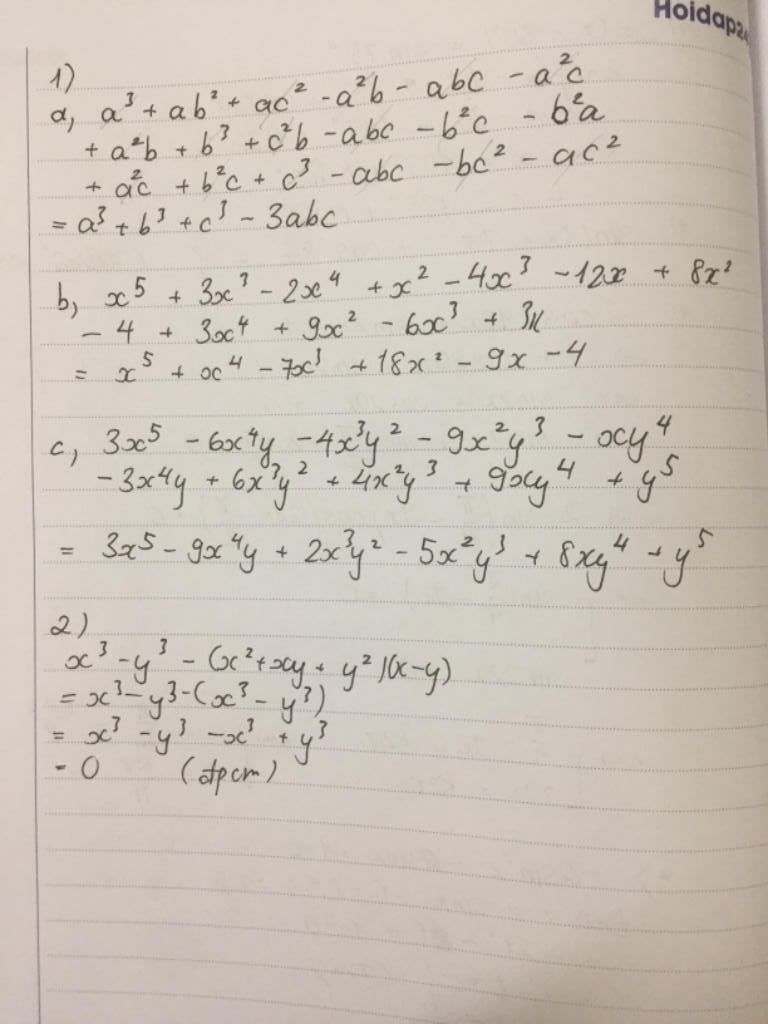 Hoidap24
1)
a, a³ + ab² + ac² - a²b - abc - a²c
+ a²b + b³ + c²b - abc - b²c - b²a
+ a²c + b²c + c³ - abc - bc² - ac²
= a³ + b³ + c³ - 3abc
b, x⁵ + 3x³ - 2x⁴ + x² - 4x³ - 12x + 8x²
- 4 + 3x⁴ + 9x² - 6x³ + 3x
= x⁵ + x⁴ - 7x³ + 18x² - 9x - 4
c, 3x⁵ - 6x⁴y - 4x³y² - 9x²y³ - xy⁴
- 3x⁴y + 6x³y² + 4x²y³ + 9xy⁴ + y⁵
= 3x⁵ - 9x⁴y + 2x³y² - 5x²y³ + 8xy⁴ + y⁵
2)
x³ - y³ - (x² + xy + y²)(x - y)
= x³ - y³ - (x³ - y³)
= x³ - y³ - x³ + y³
= 0 (đpcm)